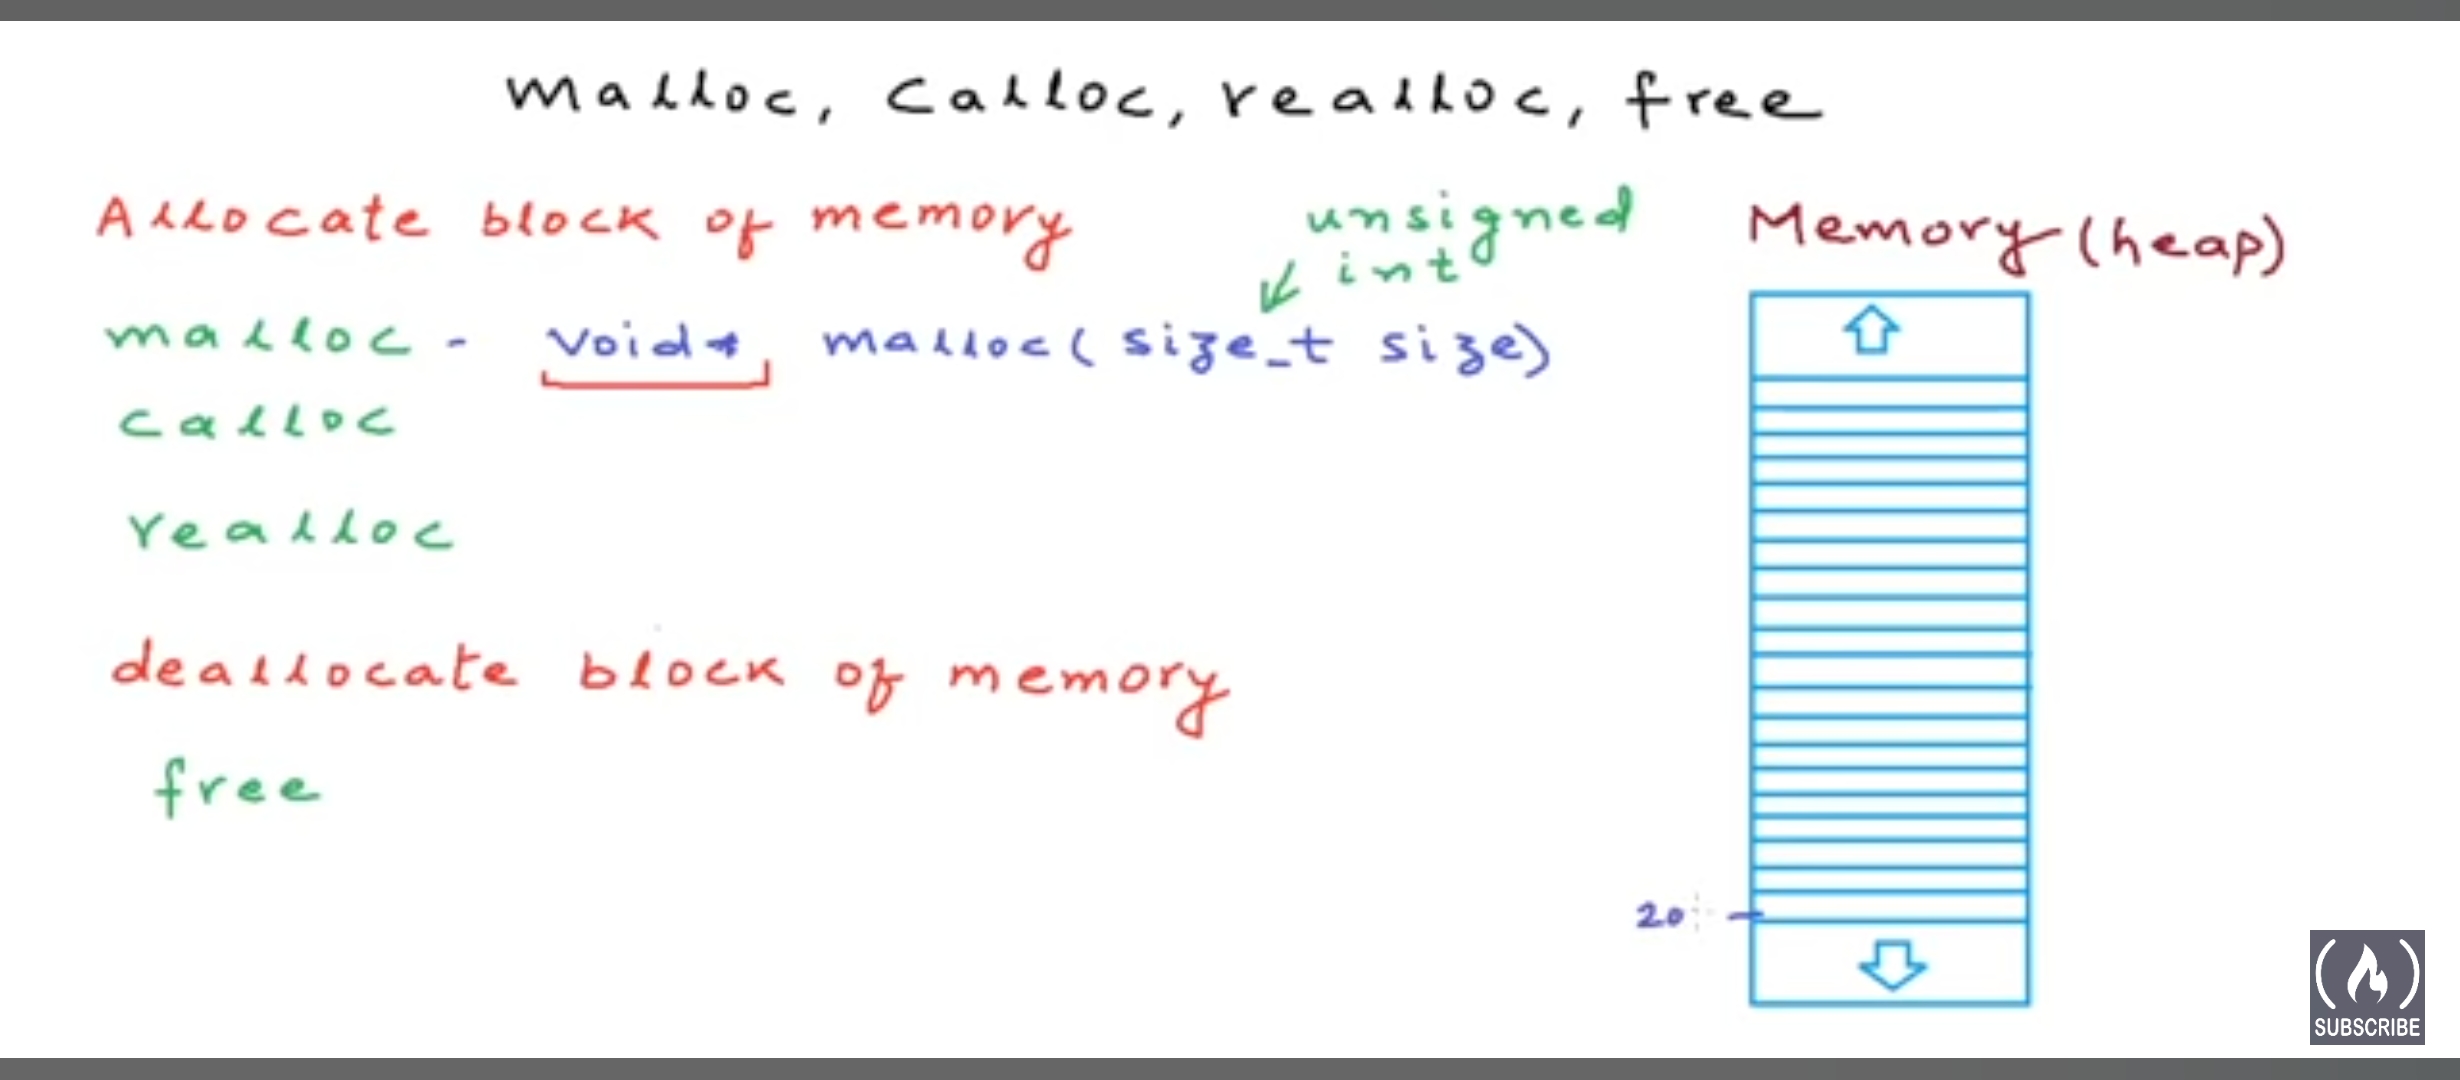 malloc, calloc, realloc, free
Allocate block of memory
unsigned
int
malloc - void* malloc(size_t size)
calloc
realloc
deallocate block of memory
free
Memory (heap)
20
SUBSCRIBE